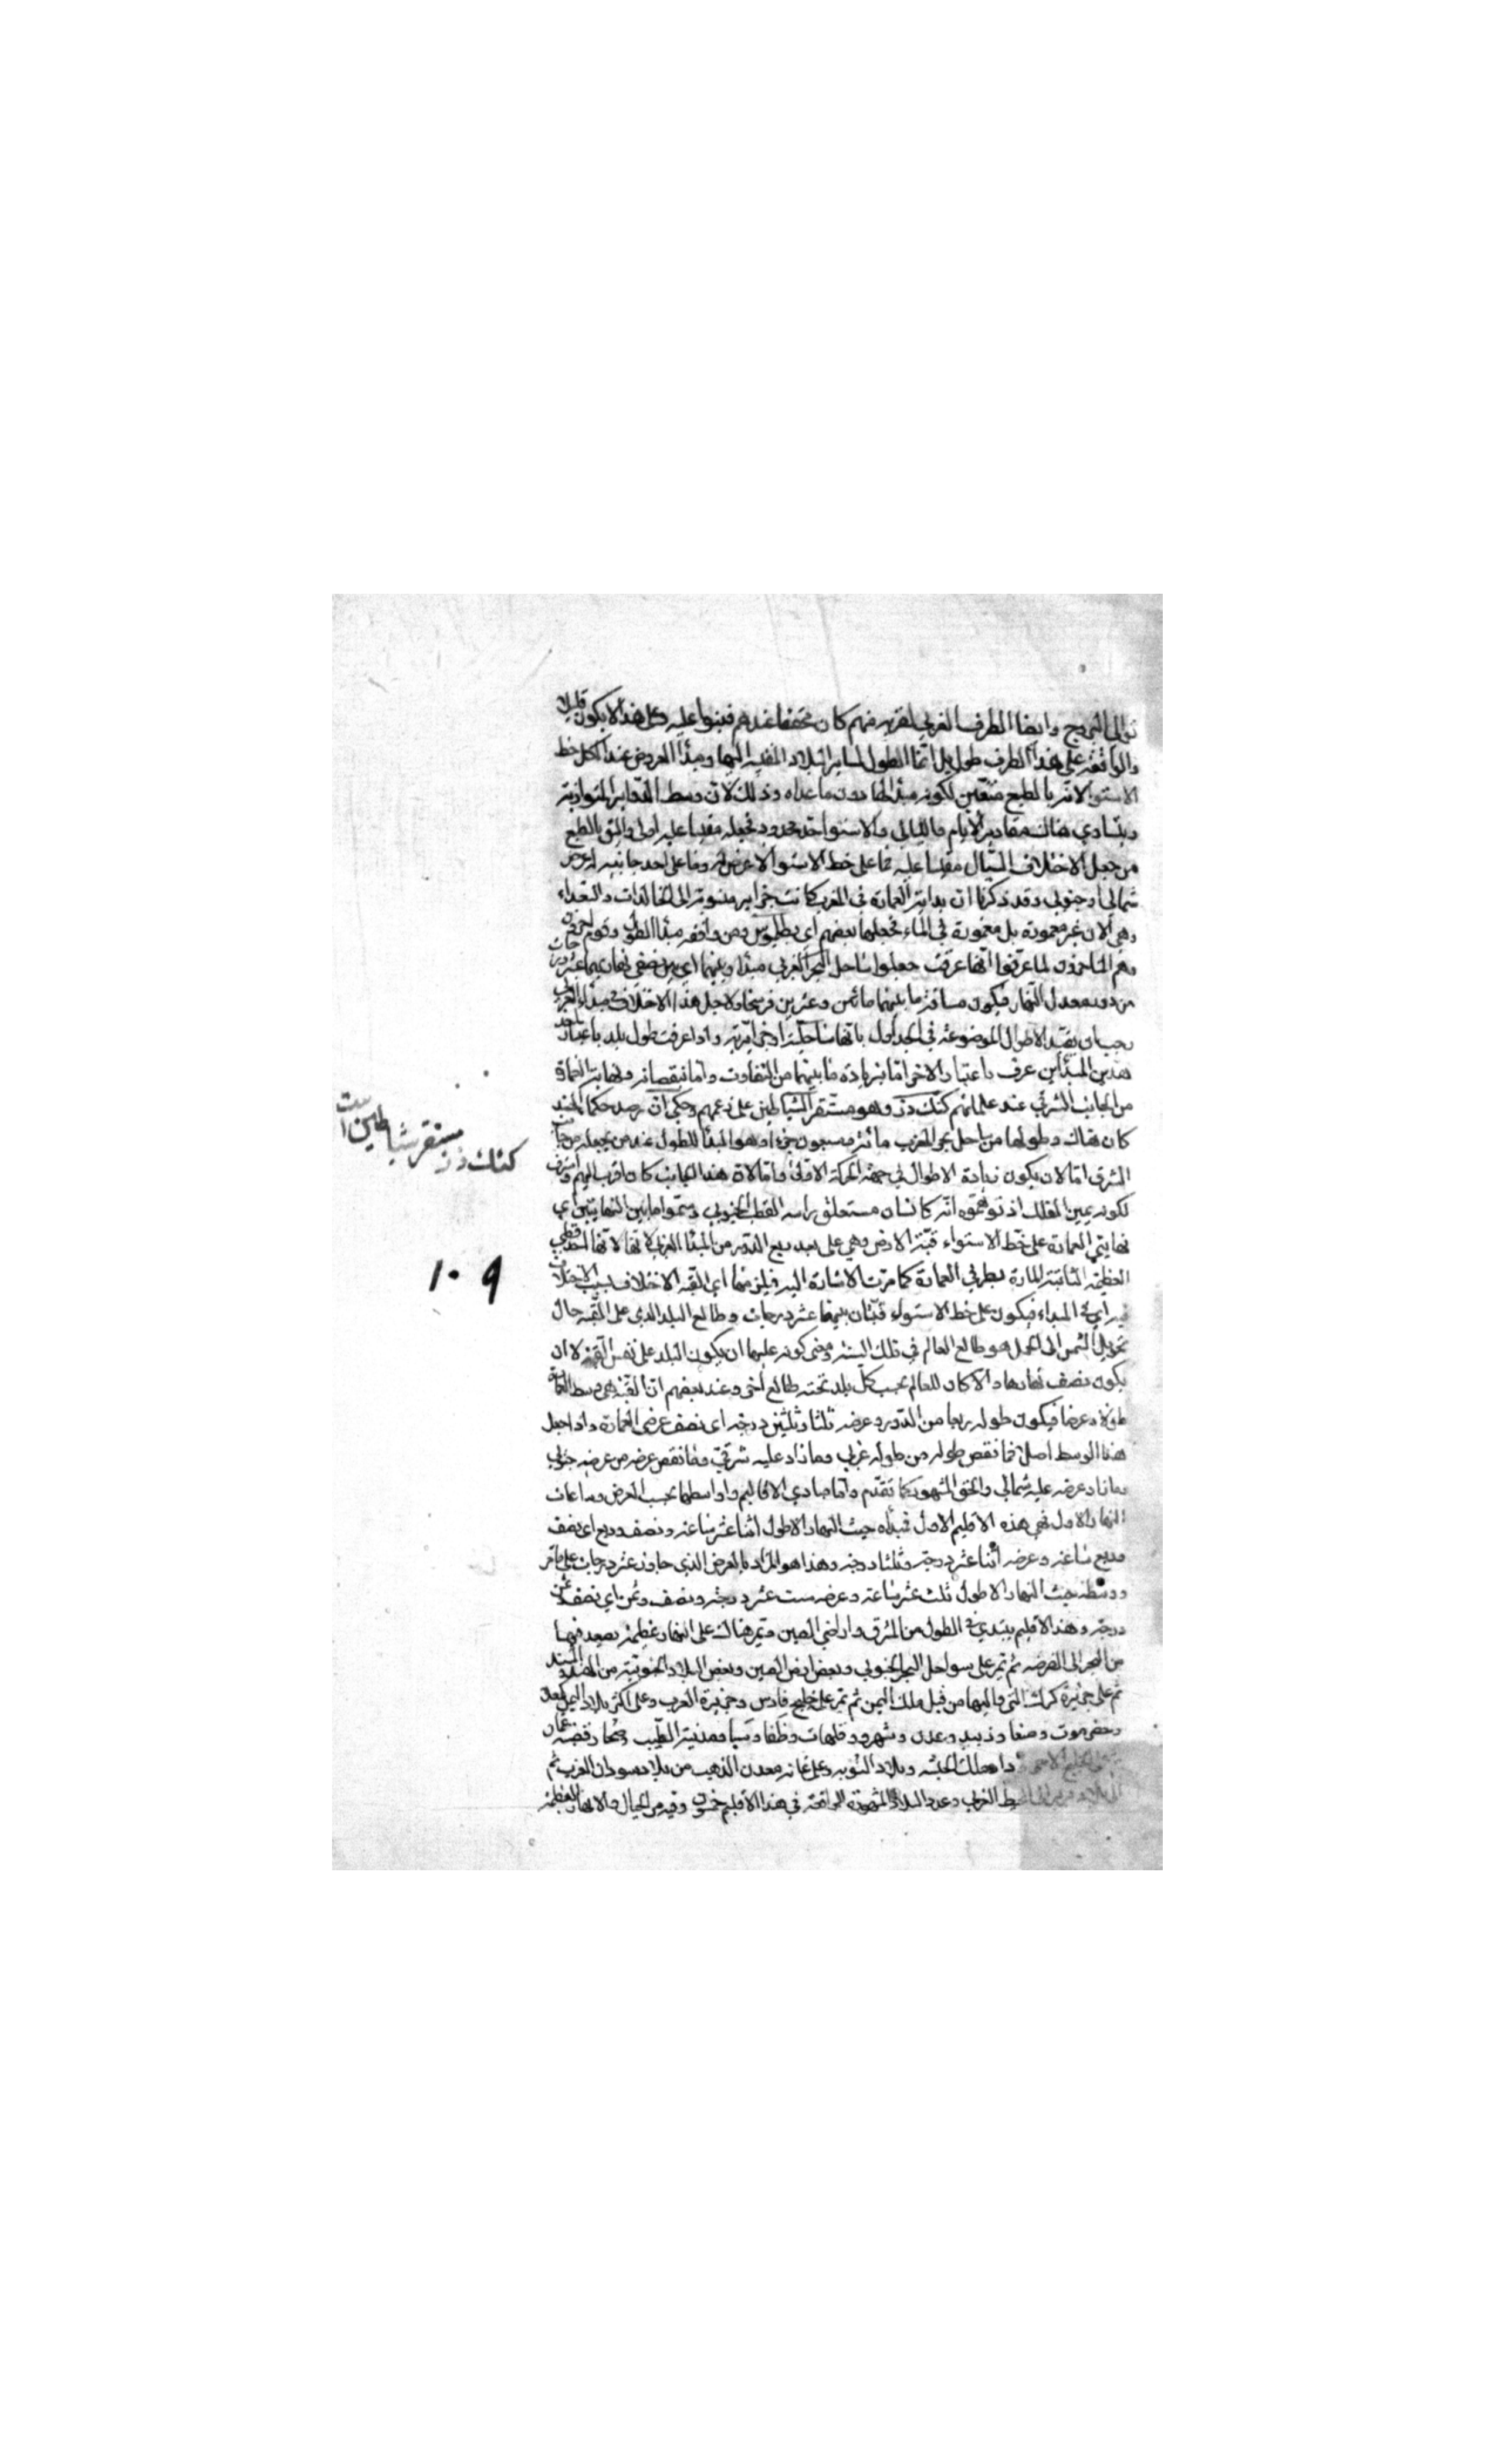 توالى البروج وايضا الطرف الغربى لقربه منهم كان محققا عندهم فبنوا عليه وعلى هذا لا يكون قليلا
والواقعة على هذا الطرف طول بل انما الطول لساير البلاد المقيسة اليها ومبدأ العروض عند الكل خط
الاستواء لانه بالطبع متعين لكونه مبدأ لها دون ما عداه وذلك لان وسط المدارات المتوازية
ويتساوى هناك مقادير الايام والليالى والاستواء حد محدود فجعله مقيسا عليه اولى واليق بالطبع
من جعل الاختلاف السيال مقيسا عليه فما على خط الاستواء لا عرض له وما على احد جانبيه له عرض
شمالى او جنوبى وقد ذكرنا ان بداية العمارة فى المغرب كانت جزاير منسوبة الى الخالدات والسعداء
وهى الان غير معمورة بل مغمورة فى الماء فجعلها بعضهم اى بطليموس ومن وافقه مبدأ الطول وقوم اخرون
وهم المتاخرون لما عرفوا انها غرقت جعلوا ساحل البحر الغربى مبدأ وبينهما اى بين نصفى نهاريهما عشر درجات
من دور معدل النهار فيكون مسافة ما بينهما مائتين وعشرين فرسخا ولاجل هذا الاختلاف فى مبداء العمارة
يجب ان يقيد الاطوال الموضوعة فى الجداول بانها ساحلية او جزايرية واذا عرفت طول بلد باعتبار احد
هذين المبدأين عرف باعتبار الاخر اما بزيادة ما بينهما من التفاوت واما بنقصانه ونهاية العمارة
من الجانب الشرقى عند علمائهم كنك دز وهو مستقر الشياطين على زعمهم وحكى ان رصد حكماء الهند
كان هناك وطولها من ساحل بحر المغرب مائة وسبعون جزءا وهو المبدأ للطول عند من يجعله من جانب
المشرق اما لان يكون زيادة الاطوال فى جهة الحركة الاولى واما لان هذا الجانب كان اقرب اليهم واشرف
لكونه يمين الفلك اذ توهموه انه كانسان مستعلق راسه القطب الجنوبى وسموا ما بين النهايتين اى
نهايتى العمارة على خط الاستواء قبة الارض وهى على بعد ربع الدور من المبدأ الغربى لانها احد قطبى
العظيمة الثابتة المارة بطرفى العمارة كما مرت الاشارة اليه فيلزمها اى القبة الاختلاف بسبب الاختلاف
فيه اى فى المبداء فيكون على خط الاستواء قبتان بينهما عشر درجات وطالع البلد الذى على القبة حال
تحويل الشمس الى الحمل هو طالع العالم فى تلك السنة ومعنى كونه عليها ان يكون البلد على نفس القبة لا ان
يكون نصف نهارها والا كان للعالم بحسب كل بلد تحته طالع اخر وعند بعضهم ان القبة هى وسط العمارة
طولا وعرضا فيكون طوله ربعا من الدور وعرضه ثلثا وثلثين درجة اى نصف عرض العمارة واذا جعل
هذا الوسط اصلا فما نقص طوله من طوله غربى وما زاد عليه شرقى وما نقص عرضه من عرضه جنوبى
وما زاد عرضه عليه شمالى والحق المشهور كما تقدم واما مبادى الاقاليم واواسطها بحسب العرض وساعات
النهار الاطول فهى هذه الاقليم الاول مبدأه حيث النهار الاطول اثنا عشر ساعة ونصف وربع اى نصف
وربع ساعة وعرضه اثنا عشر درجة وثلثا درجة وهذا هو المراد بالعرض الذى جاوز عشر درجات على ما مر
ووسطه حيث النهار الاطول ثلث عشر ساعة وعرضه ست عشر درجة ونصف وثمن اى نصف وثمن
درجة وهذا الاقليم يبتدى فى الطول من المشرق واراضى الصين ويمر هناك على انهار عظيمة يصعد فيها
من البحر الى الفرضة ثم تمر على سواحل البحر الجنوبى وبعض ارض الصين وبعض البلاد الجنوبية من الهند والسند
ثم على جزيرة كرك التى واليها من قبل ملك اليمن ثم تمر على خليج فارس وجزيرة العرب وعلى اكثر بلاد اليمن كعدن
وحضرموت وصنعا وزبيد وعدن وشهر وقلهات وظفار وسبا ومدينة الطيب وصحار قصبة عمان
الخليج الاحمر دار مملكة الحبشة وبلاد النوبة وعلى غانه معدن الذهب من بلاد سودان الغرب ثم
الغربى وعدد البلاد المشهورة الواقعة فى هذا الاقليم خمسون وفيه من الجبال والانهار العظيمة
كنك دز مستقر شياطين است
۱۰۹